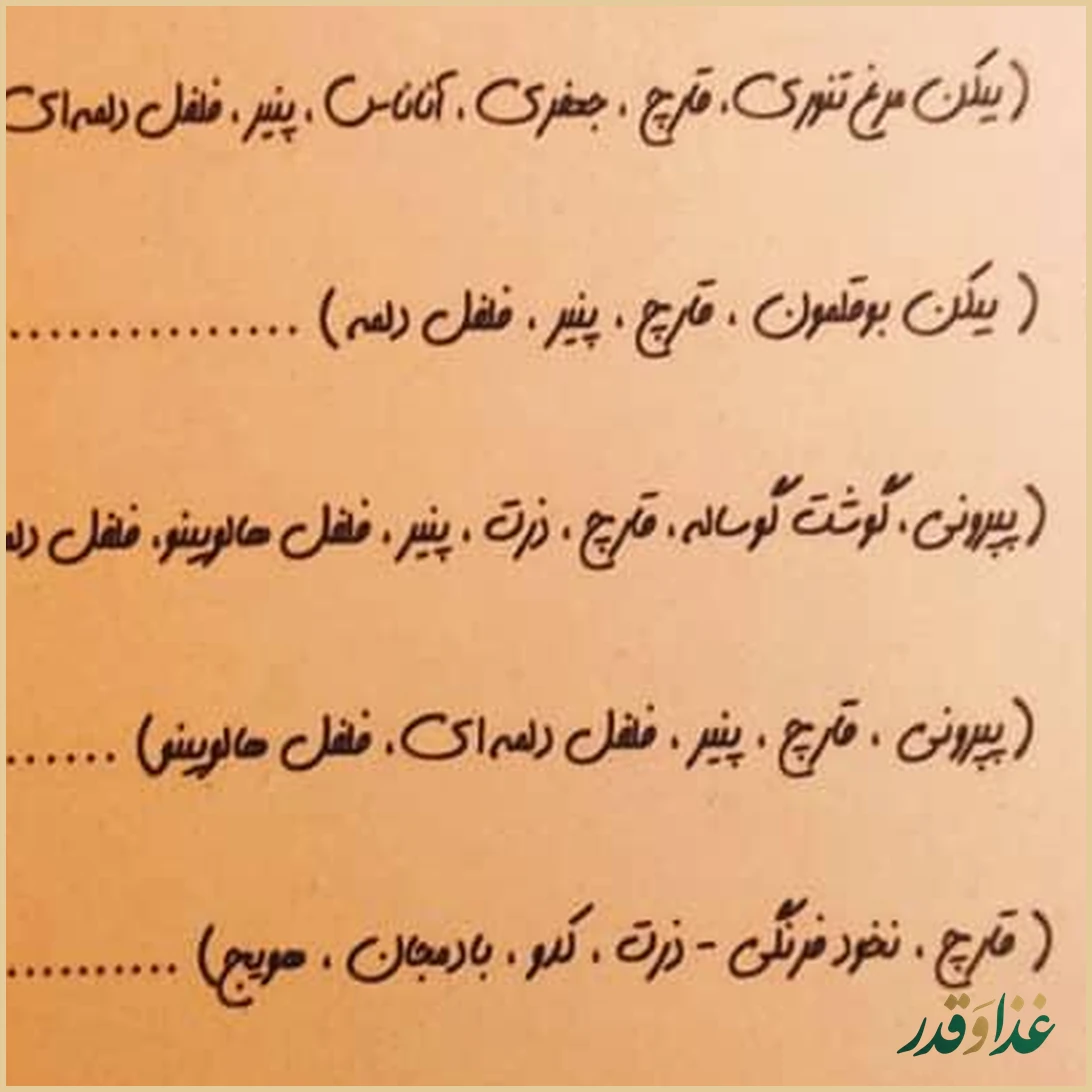 (بیکن مرغ تنوری، قارچ ، جعفری ، آناناس ، پنیر ، فلفل دلمه‌ای
( بیکن بوقلمون ، قارچ ، پنیر ، فلفل دلمه) ...............
(پپرونی ، گوشت گوساله، قارچ ، ذرت ، پنیر ، فلفل هالوپینو، فلفل دلم
(پپرونی ، قارچ ، پنیر ، فلفل دلمه‌ای، فلفل هالوپینو) ......
( قارچ ، نخود فرنگی - ذرت ، کدو ، بادمجان ، هویج) ..........
غذا و قدر